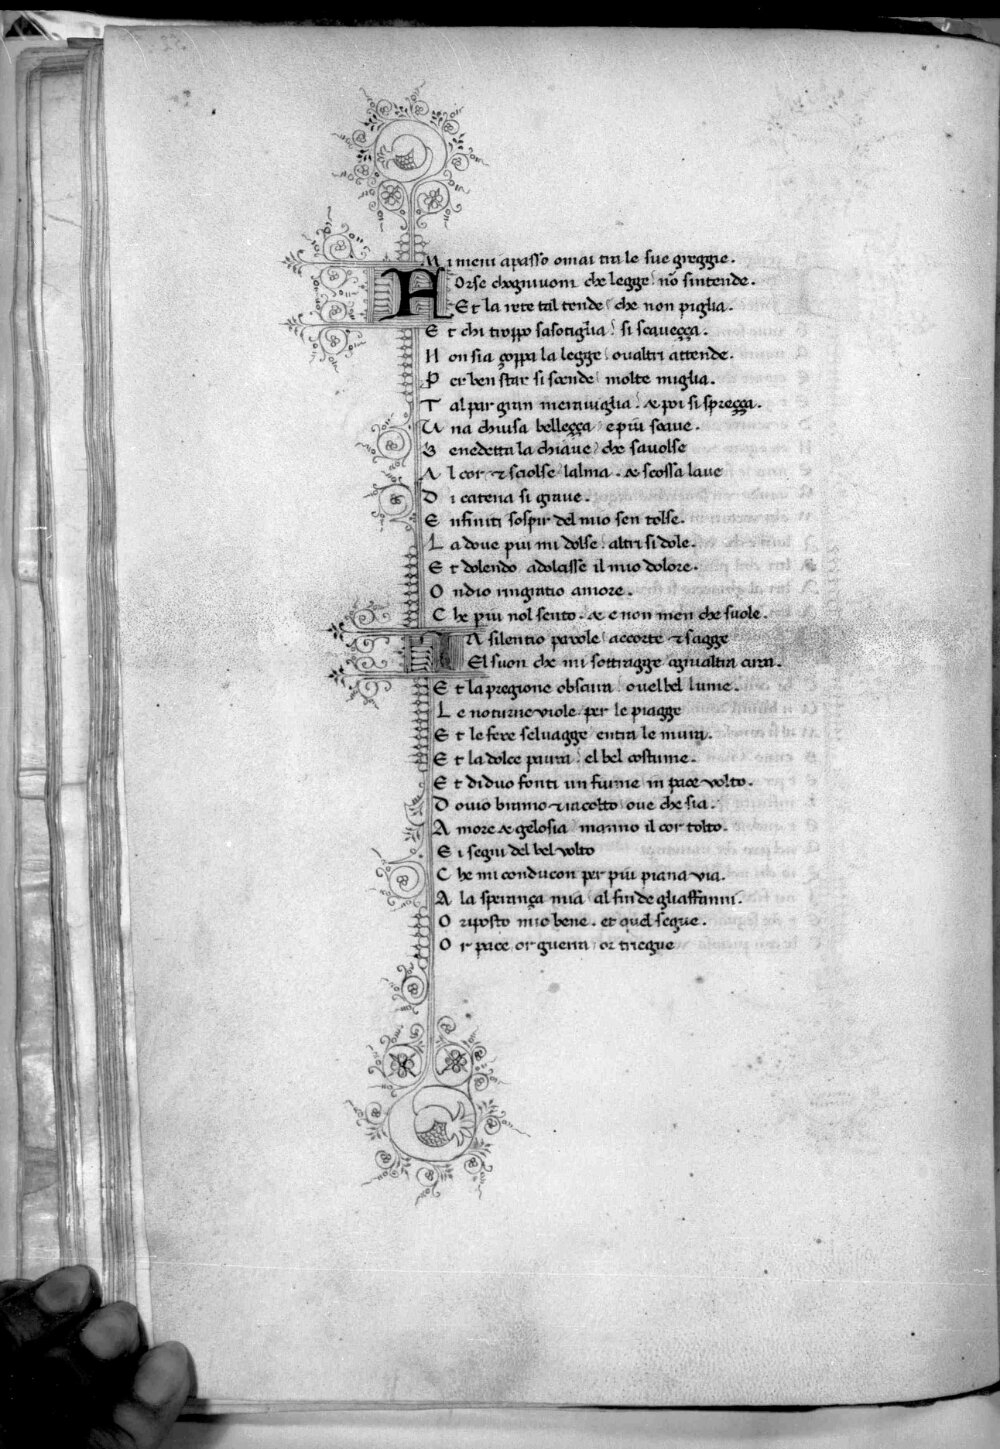 M i meni apasso omai tra le sue greggie.
F Orse chogniuom che legge non sintende.
Et la rete tal tende che non piglia.
E t chi troppo sasotiglia si scaveçça.
N on sia çoppa la legge oualtri attende.
P er ben star si scende molte miglia.
T al par gran meraviglia & poi si spreçça.
U na chiusa belleçça e piu soave.
B enedetta la chiave che savolse
A l cor & sciolse lalma. & scossa lave
D i catena si grave.
E nfiniti sospir del mio sen tolse.
L a dove piu mi dolse altri si dole.
E t dolendo adolcisse il mio dolore.
O ndio ringratio amore.
C he piu nol sento. & e non men che suole.
I N silentio parole accorte & sagge
El suon che mi sottragge ogni altra cura.
E t la pregione obscura ovel bel lume.
L e noturne viole per le piagge
E t le fere selvagge entra le mura.
E t la dolce paura el bel costume.
E t di duo fonti un fiume in pace volto.
D ovio bramo & racolto ove che sia.
A more & gelosia manno il cor tolto.
E i segni del bel volto
C he mi conducon per piu piana via.
A la sperança mia al fin de gliaffanni.
O riposto mio bene. et quel segue.
O r pace or guerra or triegue